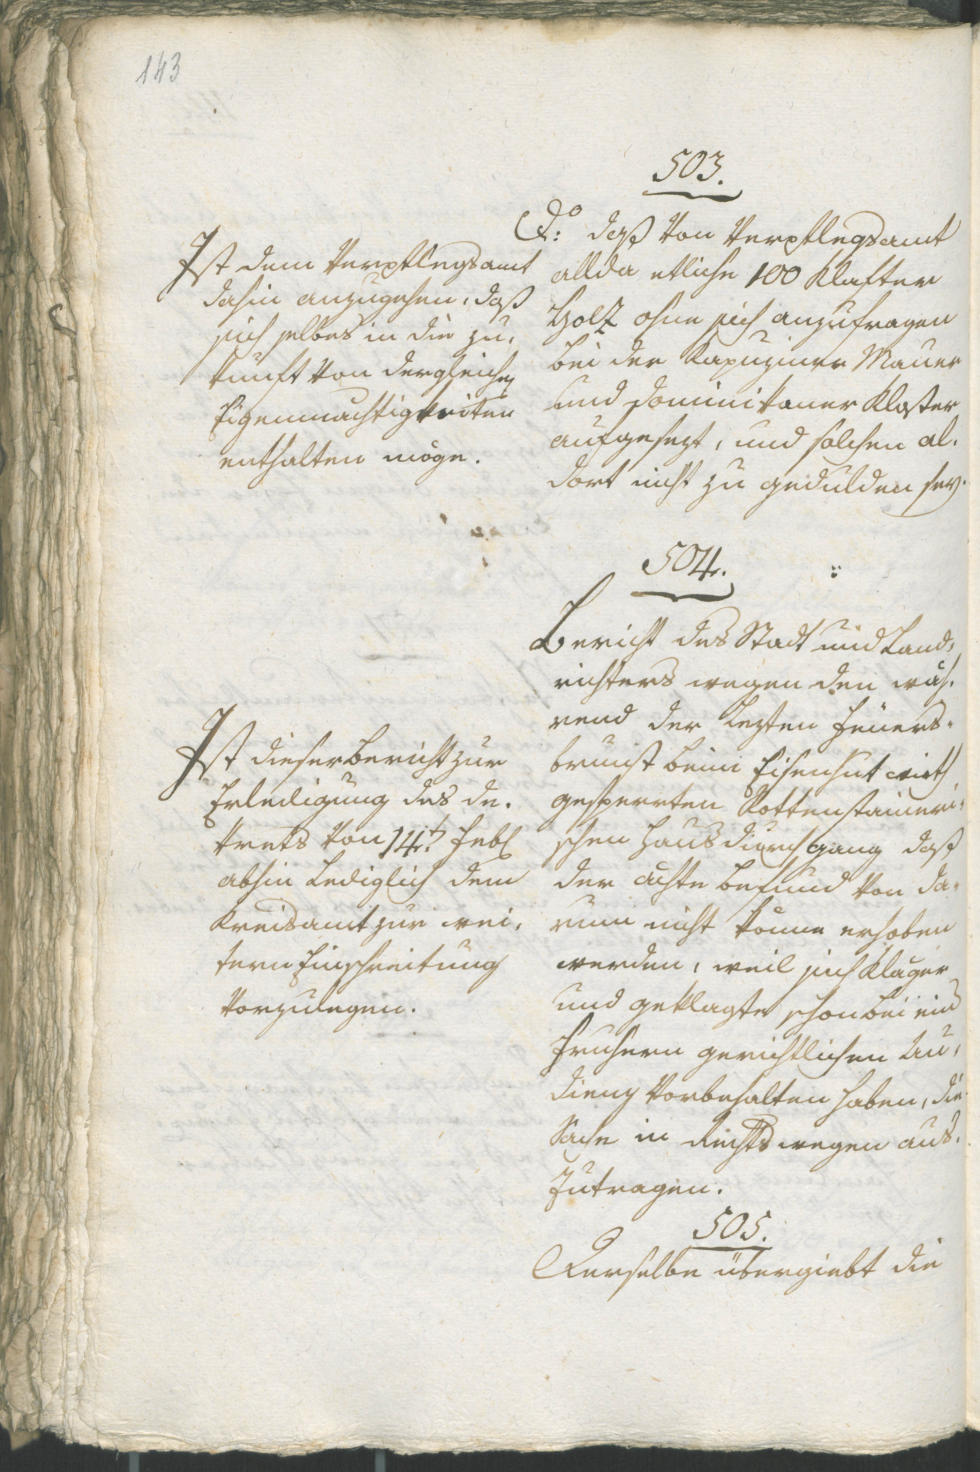 143
503.
Do: daß von Verpflegsamt
allda etliche 100 Klafter
Holz ohne sich anzufragen
bei der Kapuziner Mauer
und Dominikaner Kloster
aufgesezt, und solchen al-
dort nicht zu gedulden sey.
Ist dem Verpflegsamt
dahin anzugehen, daß
sich selbes in die zu-
kunft von dergleichen
Eigenmachtigkeiten
enthalten möge.
504.
Bericht des Stadt und Land-
richters wegen den wäh-
rend der lezten Feuers-
brunst beim Eisenhut wirth
gesperrten Rottenstaineri-
schen Hausdurchgang daß
der ächte Befund von da-
rum nicht könne erhoben
werden, weil sich Kläger
und geklagte schon bei ein
fruhern gerichtlichen Au-
dienz vorbehalten haben, die
Sache in Rechts wegen aus-
zutragen.
Ist dieser Bericht zur
Erledigung des de-
krets von 14t Febr
abhin lediglich dem
Kreisamt zur wei-
tern Einschreitung
vorzulegen.
505.
Derselbe übergiebt die